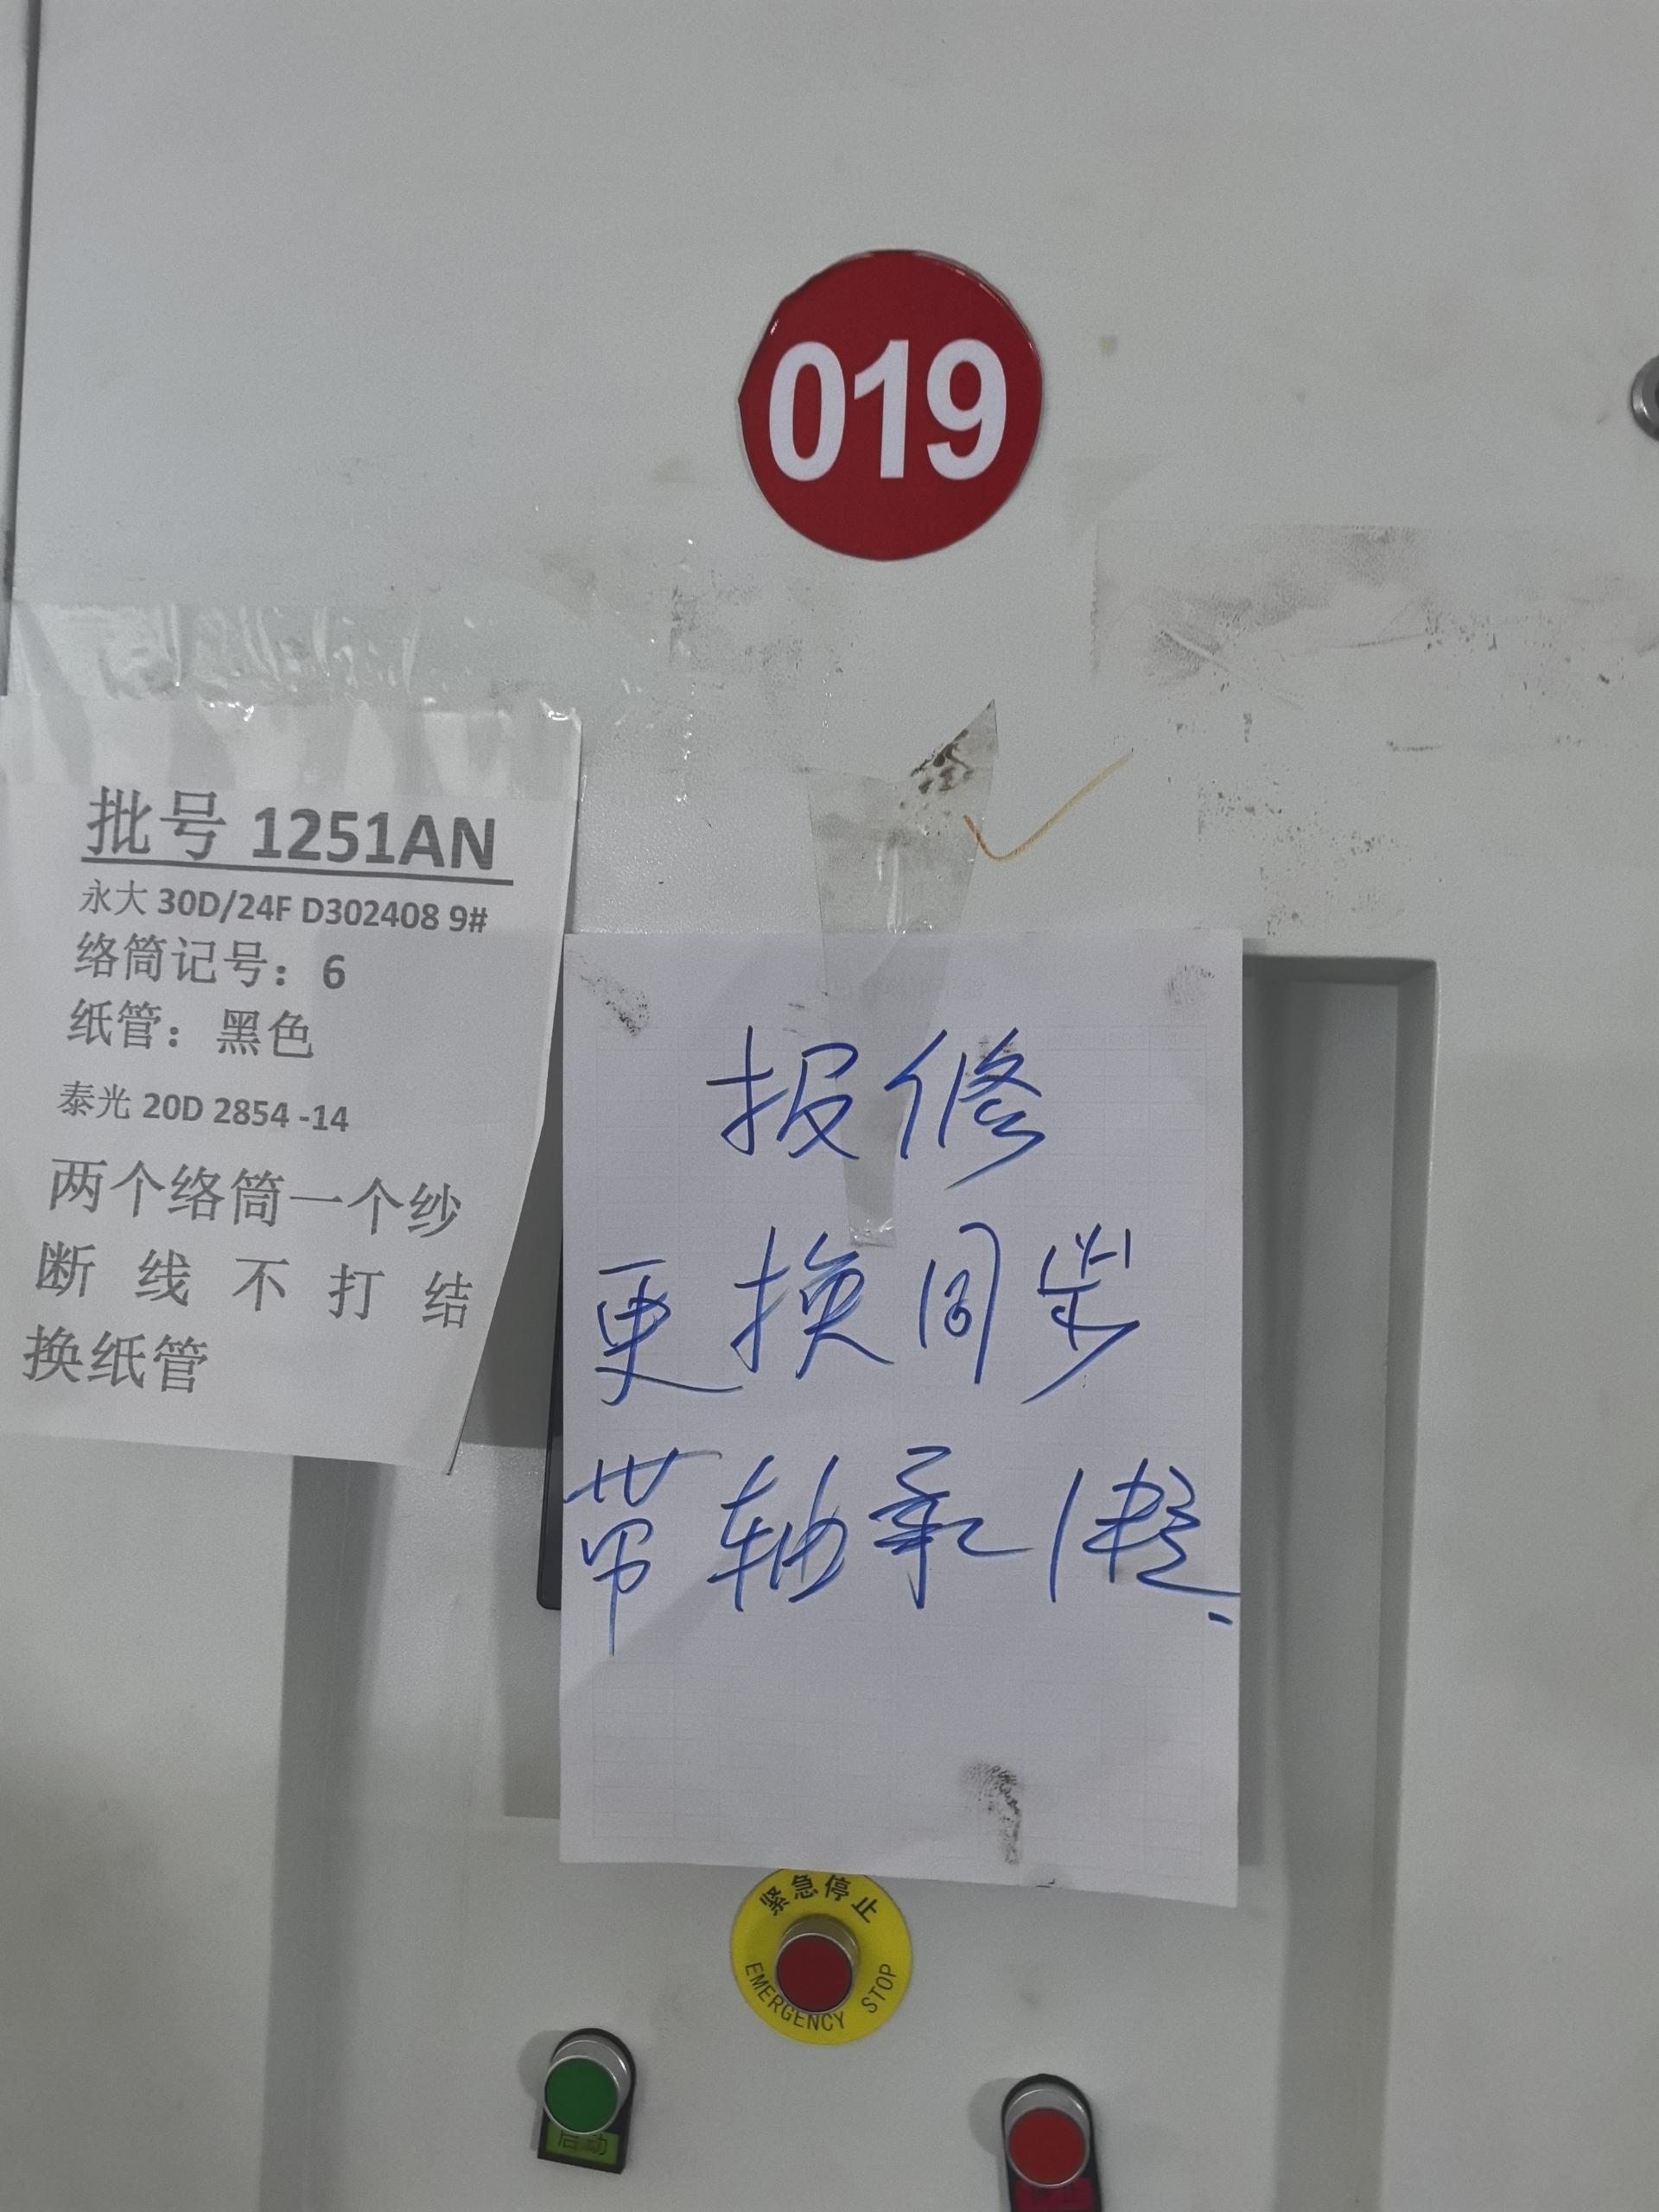 019
批号 1251AN
永大 30D/24F D302408 9#
络筒记号：6
纸管：黑色
泰光 20D 2854 -14
两个络筒一个纱
断 线 不 打 结
换纸管
报修
更换同步
带轴承
紧急停止
EMERGENCY STOP
启动